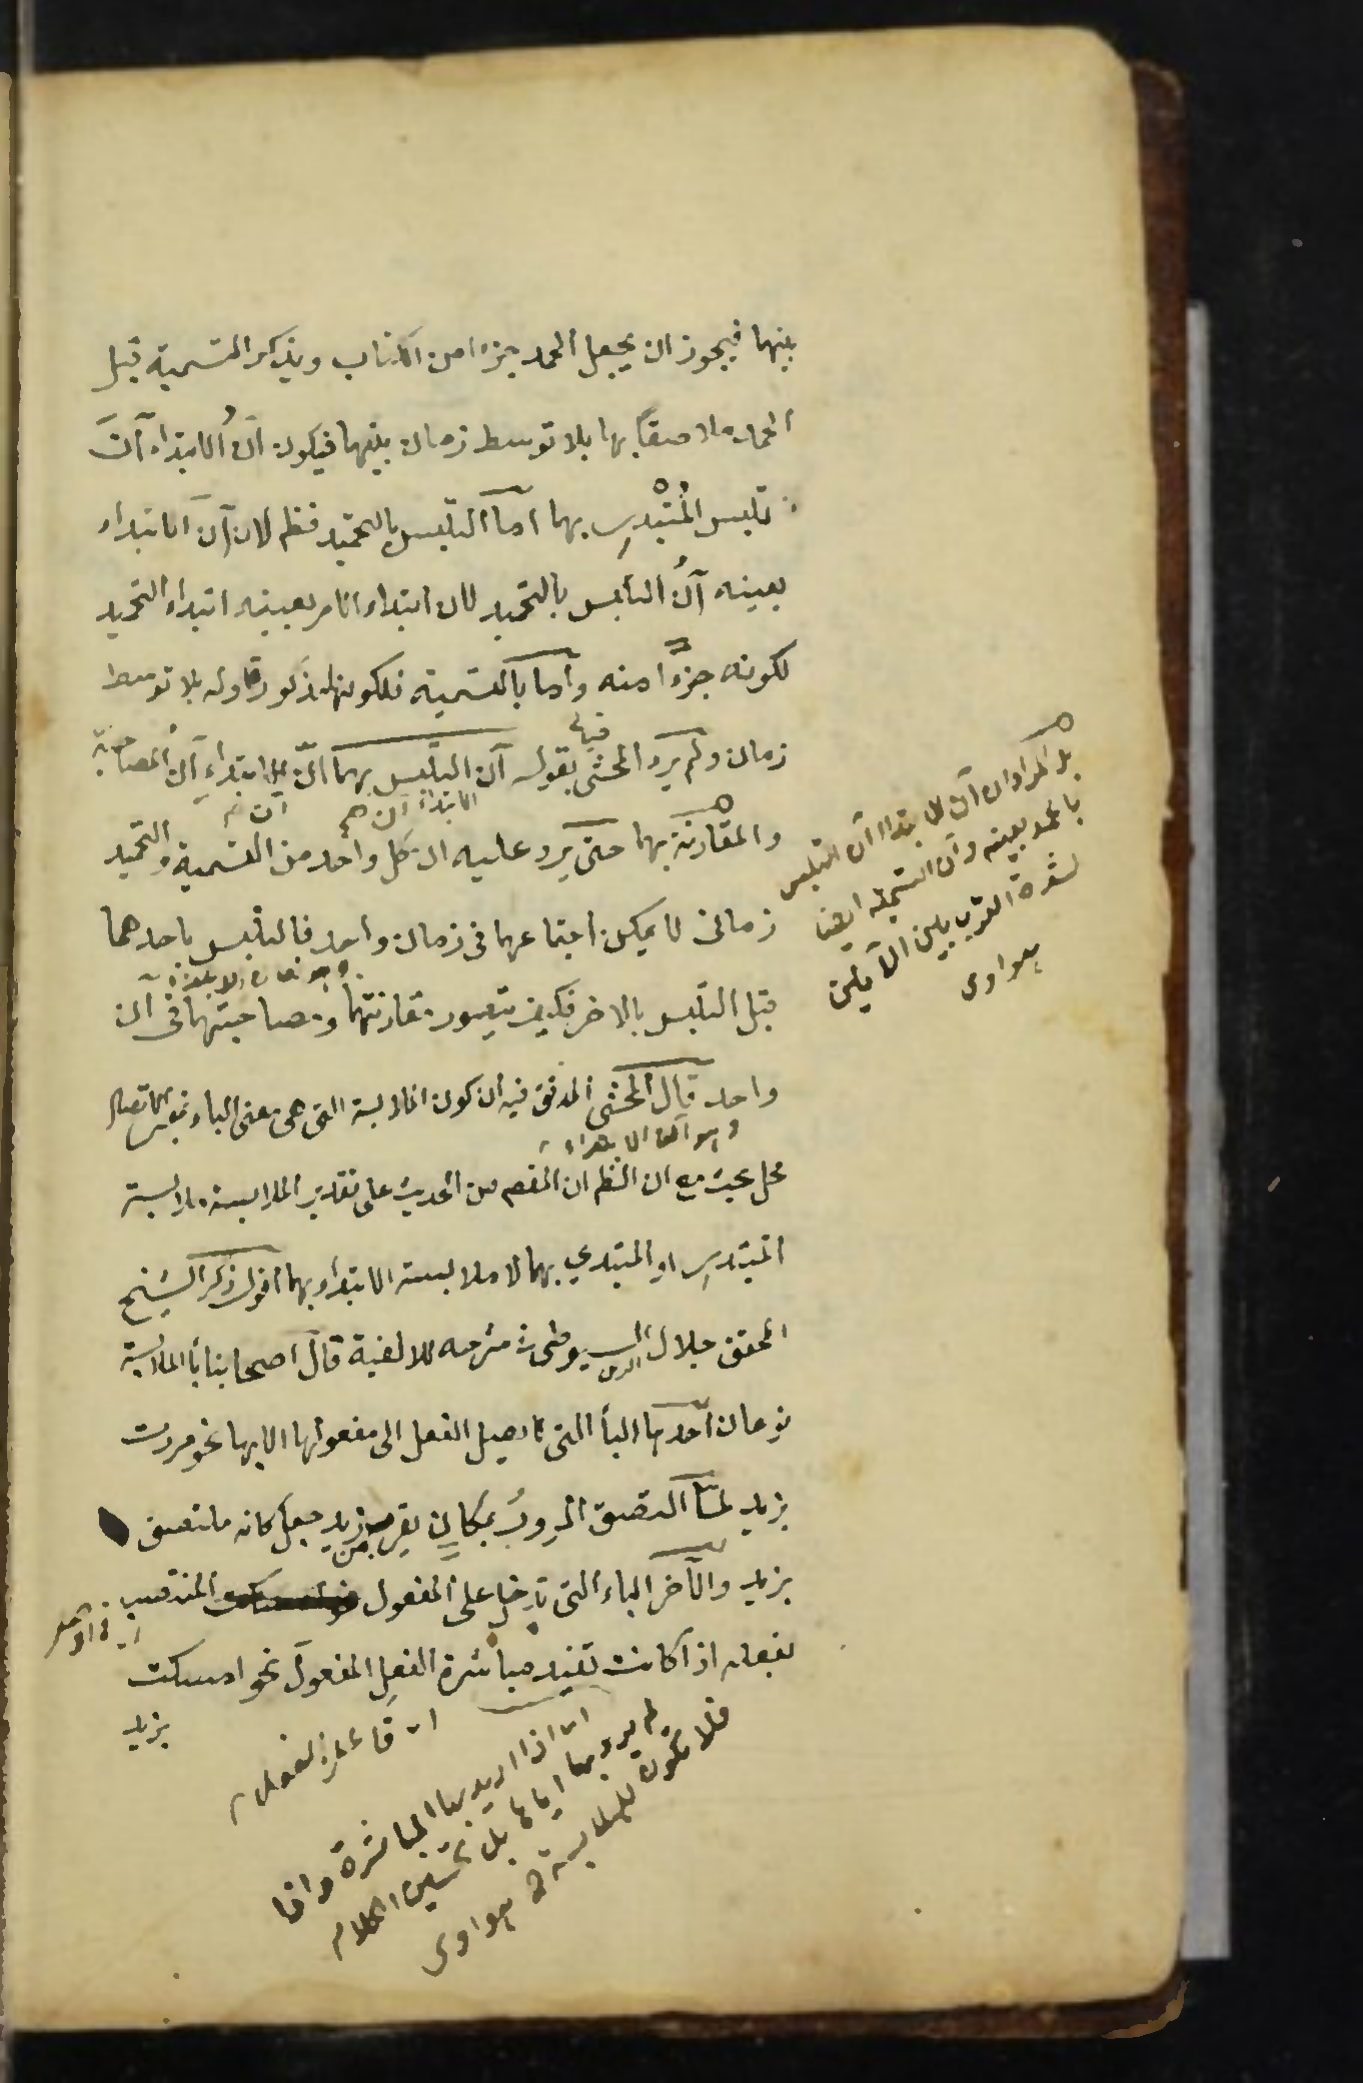 بينهما فيجوز ان يجعل الحمد جزءا من الكتاب ويذكر التسمية قبل
الحمد ملاصقاً بها بلا توسط زمان بينهما فيكون آنُ الابتداء آنَ
تلبس المُبْتدِئ بهما اما التلبس بالتحميد فظم لان آن الابتداء
بعينه آنُ التلبس بالتحميد لان ابتداء الامر بعينه ابتداء التحميد
لكونه جزءً امنه وأما بالتسمية فلكونها مذكورة اوله بلا توسط
زمان ولم يرد المحشى بقوله آن التلبس بهما آن الابتداءِ آن المصاحبة
والمقارنة بهما حتى يرد عليه ان كل واحد من التسمية والتحميد
زمانى لا يمكن اجتماعهما فى زمان واحد فالتلبس باحدهما
قبل التلبس بالاخر فكيف يتصور مقارنتهما ومصاحبتهما فى آن
وهو آن الابتداء
واحد قال المحشى المدقق فيه ان كون الملابسة التى هى معنى الباء
محل بحث مع ان الظم ان المقصم من الحديث على تقدير الملابسة ملابسة
المبتدئ او المبتدي بهما لا ملابسة الابتداء بهما اقول ذكر الشيخ
المحقق جلال الدين السيوطى فى شرحه للالفية قال اصحابنا باالملابسة
نوعان احدهما البأ التى لا يصل الفعل الى مفعولها الا بها نحو مررت
بزيد لمّا التصق المرورُ بمكان يقرب من زيد جعل كانه ملتصق
بزيد والآخر الباء التى تدخل على المفعول المنتصب
بفعله اذا كانت تفيد مباشرة الفعل المفعولَ نحو امسكت
بزيد
بل المراد ان آن الابتداء آن التلبس
بالحمد بعينه وآن التسمية ايضا
لشدة القرب بين الآنين
هواوى
اى فاعل الفعل
اى اذا اريد بها المباشرة واذا
لم يرد بها اياها بل تحسين الكلام
فلا تكون للملابسة هواوى